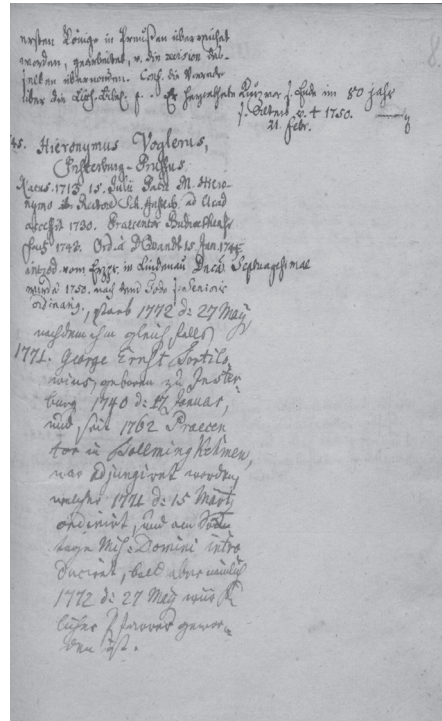 ersten Könige in Preußen überreichet
worden, gearbeitet, u. die revision des-
selben übernommen. Conf. die Vorrede
über die Lith. Bibel. Er im 80 Jahr
s. Alters u. † 1750.
21. Febr.
45. Hieronymus Voglerus,
Insterburg-Prussus.
Natus 1713 15. Julii Patre M. Hiero-
nymo Rectore Sch. ad Acad
accessit 1730. Praecentor
1742. Ord. a D. 15 Jan. 1744
introd. vom in Lindenau Domin. Septuagesimae
wurde 1750 nach dem Tode Senioris
ordinarius, starb 1772 d: 27 May
nachdem ihm gleichfalls
1771. George Ernst Sortilo,
wius, geboren zu Inster
burg 1740 d: 17 Januar,
und seit 1762 Praecen
tor in Pollmingkehmen,
war adjungiret worden,
welcher 1771 d: 15 Martz
ordinirt, und am Sonn
tage Mis: Domini intro
duciret, bald aber nämlich
1772 d: 27 May
Pfarrer gewor-
den ist.